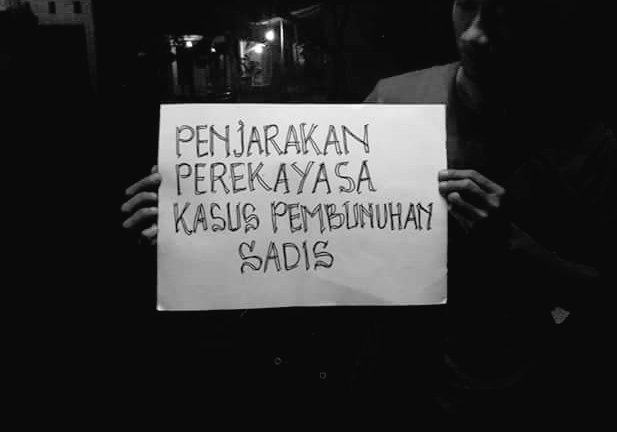 PENJARAKAN
PEREKAYASA
KASUS PEMBUNUHAN
SADIS